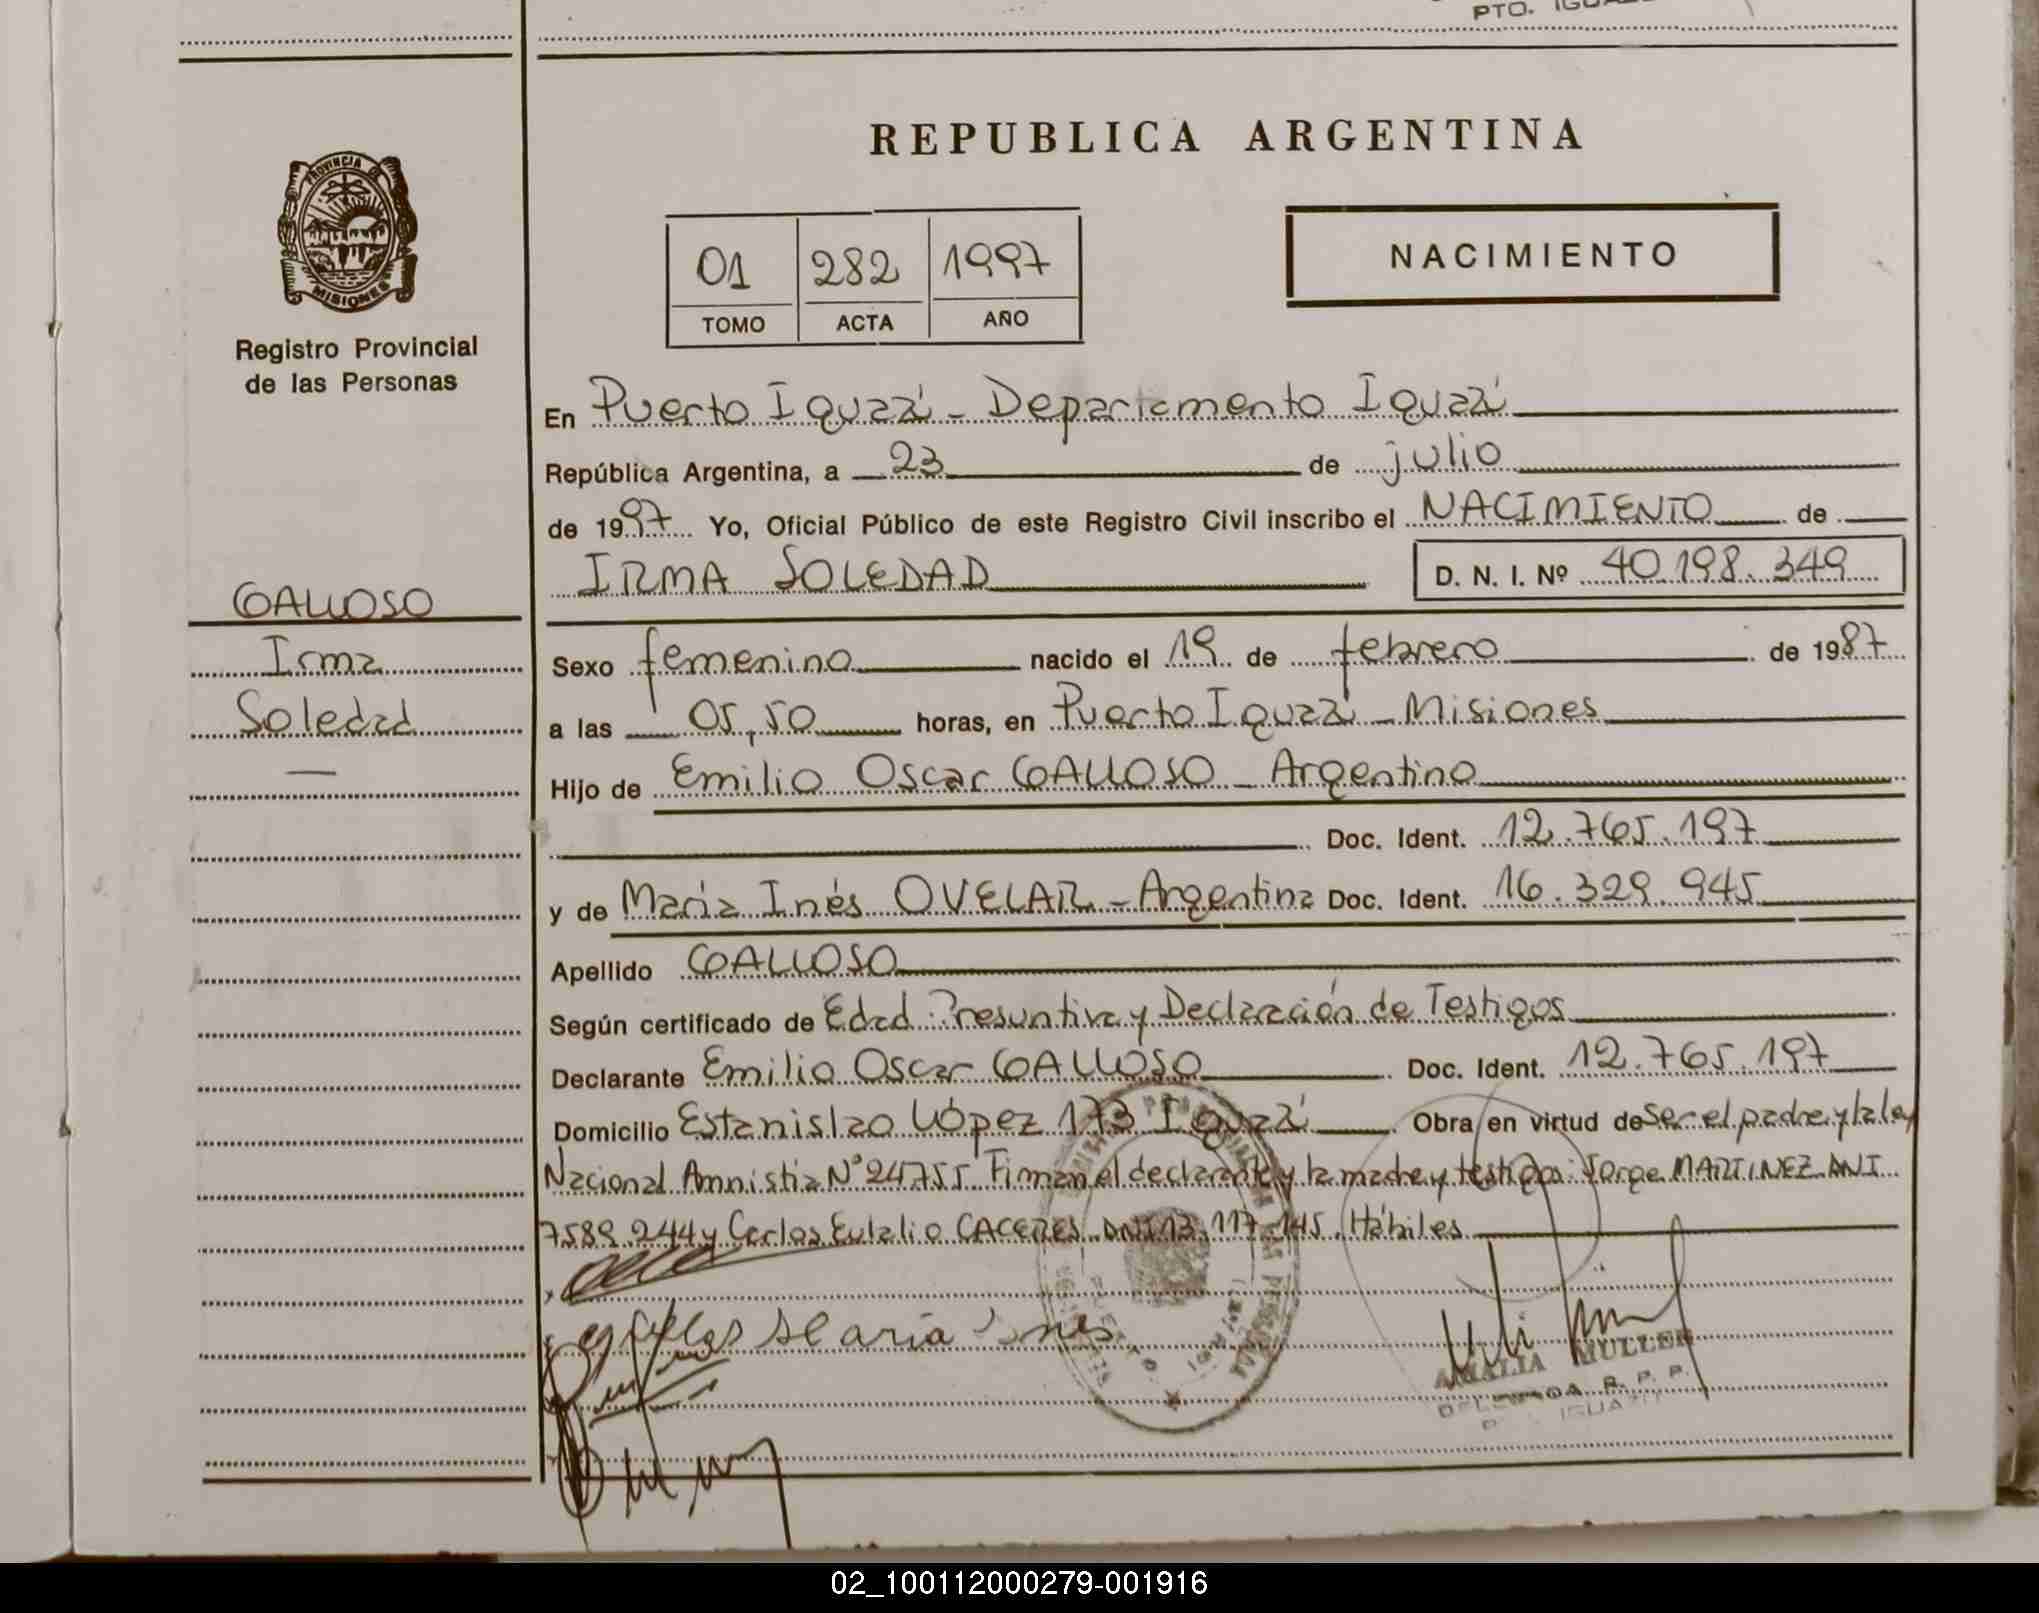 PTO.
REPUBLICA ARGENTINA
PROVINCIA DE
MISIONES
Registro Provincial
de las Personas
01 282 1997
TOMO ACTA AÑO
NACIMIENTO
En Puerto Iguazú - Departamento Iguazú
República Argentina, a 23 de julio
de 1997 Yo, Oficial Público de este Registro Civil inscribo el NACIMIENTO de
IRMA SOLEDAD D. N. I. Nº 40.198.349
GALLOSO
Irma
Soledad
Sexo femenino nacido el 19 de febrero de 1987
a las 05,50 horas, en Puerto Iguazú - Misiones
Hijo de Emilio Oscar GALLOSO - Argentino
Doc. Ident. 12.765.197
y de María Inés OVELAR - Argentina Doc. Ident. 16.329.945
Apellido GALLOSO
Según certificado de Edad Presuntiva y Declaración de Testigos
Declarante Emilio Oscar GALLOSO Doc. Ident. 12.765.197
Domicilio Estanislao López 173 Iguazú Obra en virtud de ser el padre y la ley
Nacional Amnistía Nº 24755. Firman el declarante y la madre y testigos: Jorge MARTINEZ DNI
7589.244 y Carlos Eulalio CACERES DNI 13.117.145. Hábiles
Maria Ines
AMALIA MULLER
DELEGADA R. P. P.
IGUAZU
02_100112000279-001916